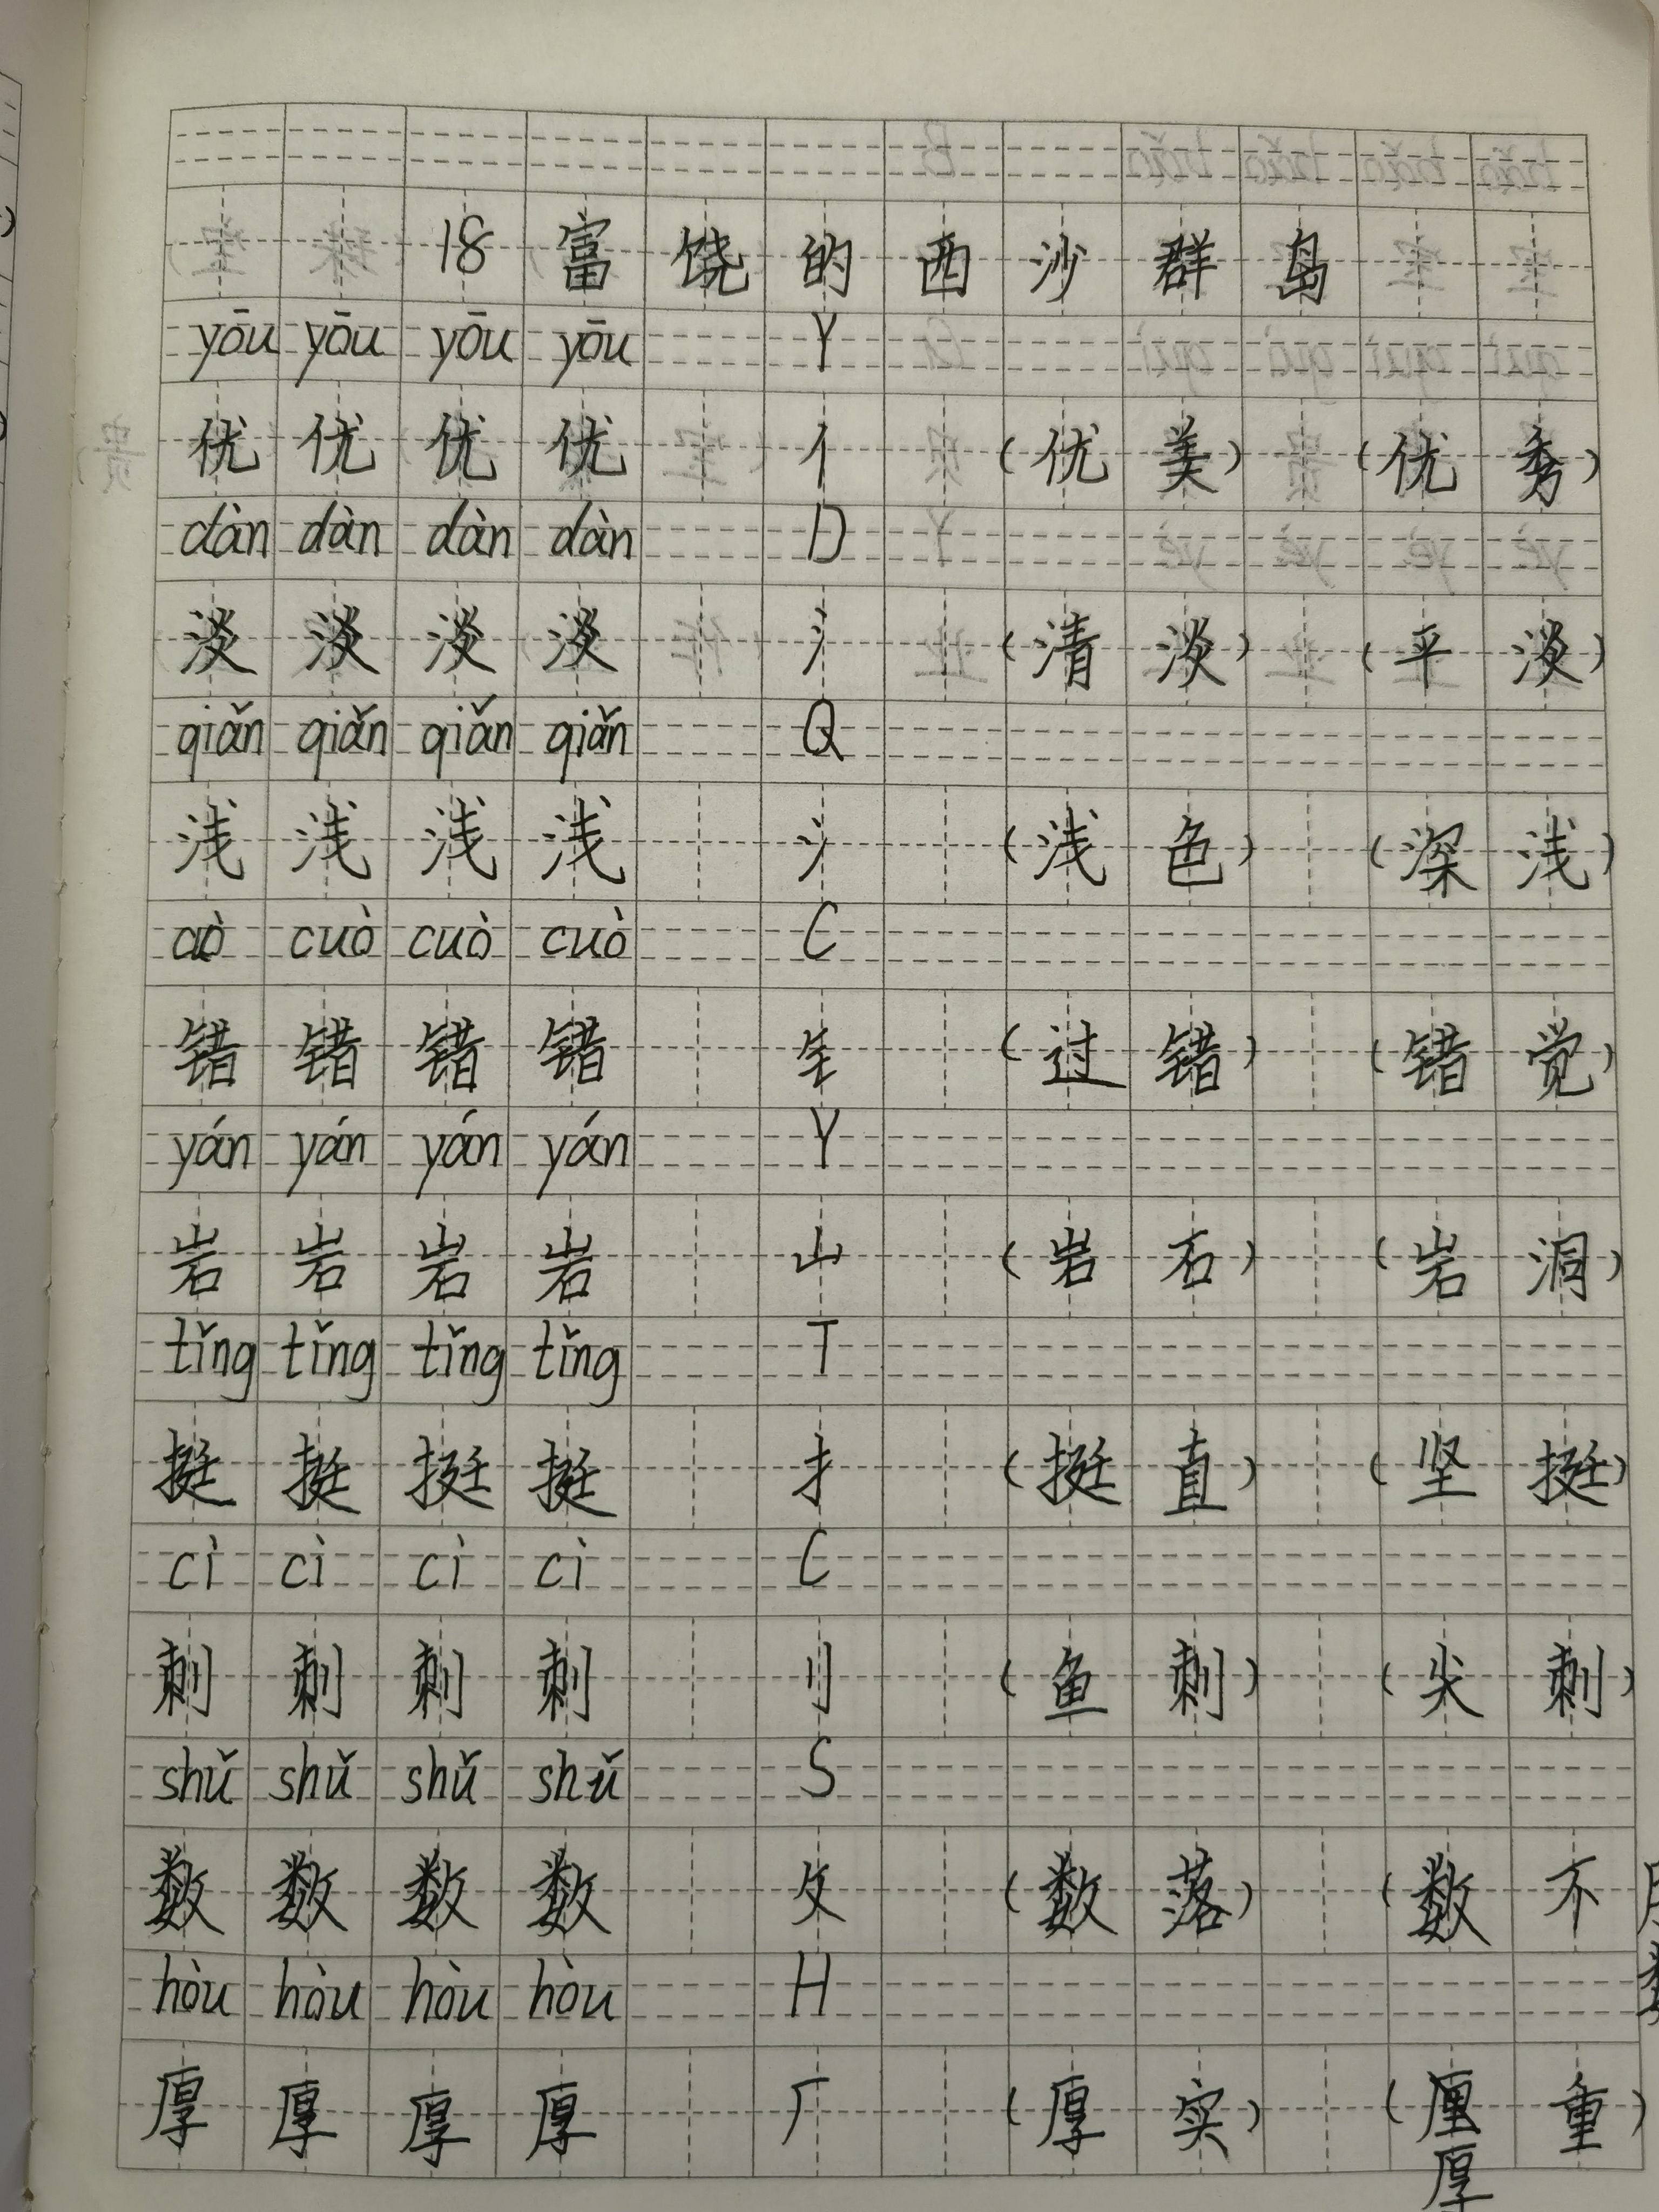 18富饶的西沙群岛
yōu yōu yōu yōu Y
优 优 优 优 亻 (优美) (优秀)
dàn dàn dàn dàn D
淡 淡 淡 淡 氵 (清淡) (平淡)
qiǎn qiǎn qiǎn qiǎn Q
浅 浅 浅 浅 氵 (浅色) (深浅)
cuò cuò cuò C
错 错 错 错 钅 (过错) (错觉)
yán yán yán yán Y
岩 岩 岩 岩 山 (岩石) (岩洞)
tǐng tǐng tǐng tǐng T
挺 挺 挺 挺 扌 (挺直) (坚挺)
cì cì cì cì C
刺 刺 刺 刺 刂 (鱼刺) (尖刺)
shǔ shǔ shǔ shǔ S
数 数 数 数 攵 (数落) (数不
hòu hòu hòu hòu H
厚 厚 厚 厚 厂 (厚实) (厘重)
厚